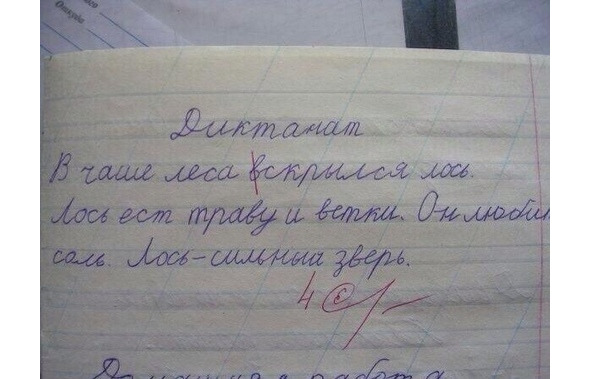 Откуда
Диктанат
В чаше леса вскрылся лось.
Лось ест траву и ветки. Он любит
соль. Лось-сильный зверь.
4
Домашняя работа